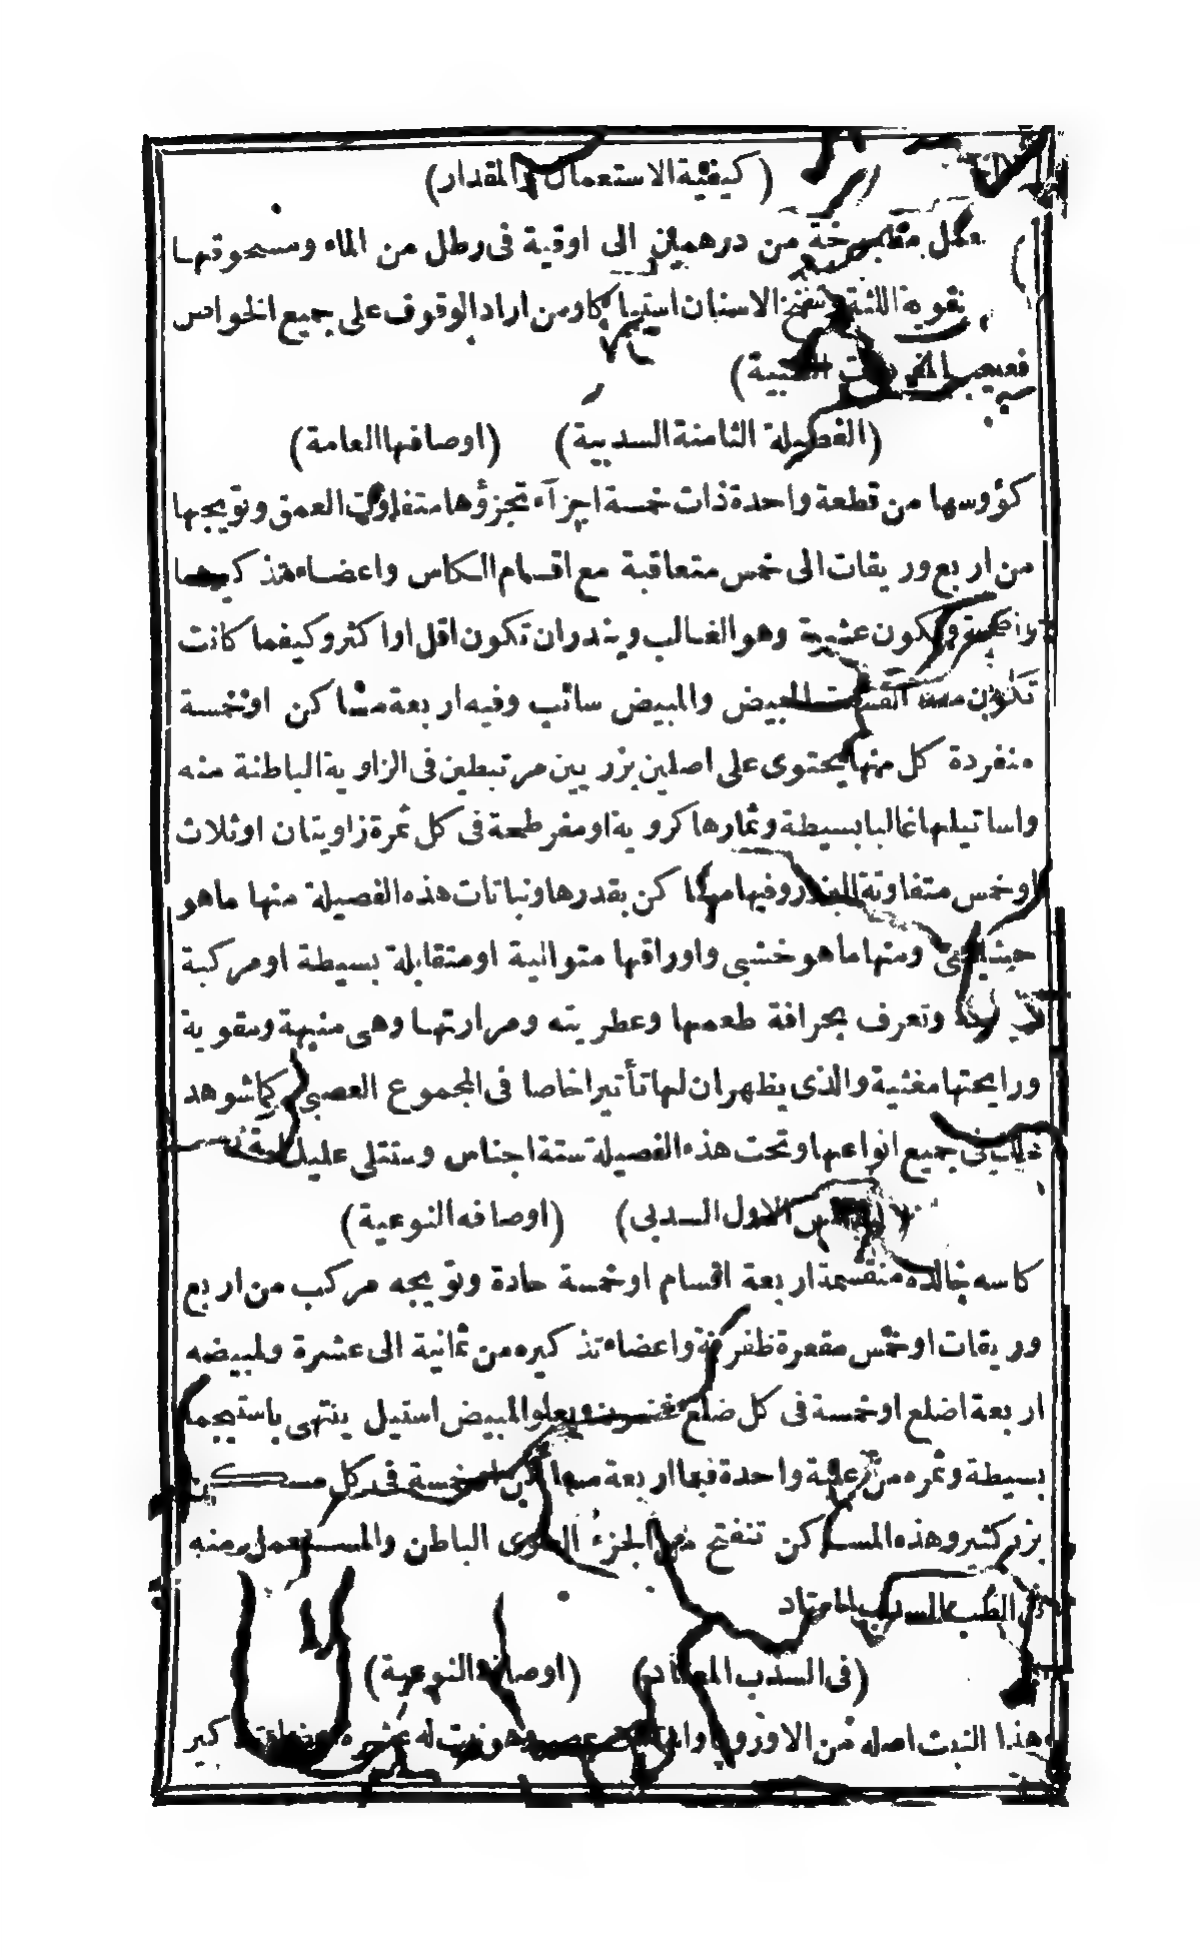 (كيفية الاستعمال والمقدار)
من درهمين الى اوقية فى رطل من الماء ومسحوقها
الاسنان استياكا ومن اراد الوقوف على جميع الخواص
فعليه الطبية)
(الفصيلة الثامنة السدبية) (اوصافها العامة)
كؤوسها من قطعة واحدة ذات خمسة اجزآء تجزؤها متفاوت العمق وتويجها
من اربع وريقات الى خمس متعاقبة مع اقسام الكاس واعضاء تذكيرها
وتكون عشرية وهو الغالب ويندران تكون اقل او اكثر وكيفما كانت
تكون المبيض والمبيض سائب وفيه اربعة مساكن او خمسة
منفردة كل منها يحتوى على اصلين بزريين مرتبطين فى الزاوية الباطنة منه
واساتيلها غالبا بسيطة وثمارها كروية او مفرطحة فى كل ثمرة زاويتان او ثلاث
او خمس متفاوتة البذر وفيها مساكن بقدرها ونباتات هذه الفصيلة منها ماهو
حشيشى ومنها ماهو خشبى واوراقها متوالية او متقابلة بسيطة او مركبة
وتعرف بحرافة طعمها وعطريته ومرارتها وهى منبهة ومقوية
ورايحتها مغثية والذى يظهران لها تأثيرا خاصا فى المجموع العصبى كما شوهد
ذلك فى جميع انواعها وتحت هذه الفصيلة ستة اجناس وستتلى عليك
الاول السدبى) (اوصافه النوعية)
كاسه خالده منقسمة اربعة اقسام او خمسة حادة وتويجه مركب من اربع
وريقات او خمس مقعرة ظفرية واعضاء تذكيره من ثمانية الى عشرة ولمبيضه
اربعة اضلع او خمسة فى كل ضلع ويعلو المبيض استيل ينتهى باستيجما
بسيطة وثمره من علبة واحدة فيها اربعة مساكن او خمسة فى كل مسكن
بزر كثير وهذه المساكن تنفتح من الجزء العلوى الباطن والمستعمل منه
فى الطب السدب المعتاد
(فى السدب المعتاد) (اوصافه النوعية)
هذا النبت اصله من الاوروپا وهو نبت له تذكير